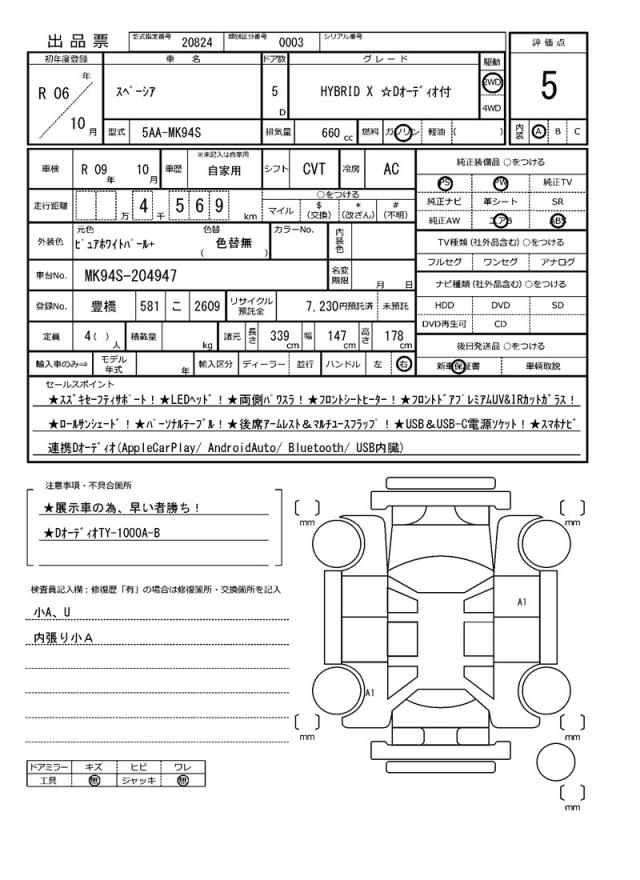 出品票
型式指定番号 20824 類別区分番号 0003 シリアル番号
初年度登録 車名 ドア数 グレード 駆動 評価点
R 06 年 10 月 スペーシア 5 D HYBRID X ☆Dオーディオ付 2WD 4WD 5
型式 5AA-MK94S 排気量 660 cc 燃料 ガソリン 軽油 ( ) 内装 A B C
車検 R 09 年 10 月 車歴 ※未記入は自家用 自家用 シフト CVT 冷房 AC
走行距離 万 4 千 5 6 9 km ○をつける マイル $(交換) *(改ざん) #(不明)
外装色 元色 ピュアホワイトパール+ 色替 ( 色替無 ) カラーNo. 内装色
車台No. MK94S-204947 名変期限 月 日
登録No. 豊橋 581 こ 2609 リサイクル預託金 7,230円預託済 未預託
定員 4( ) 人 積載量 kg 諸元 長さ 339 cm 幅 147 cm 高さ 178 cm
輸入車のみ⇒ モデル年式 年 輸入区分 ディーラー 並行 ハンドル 左 右
純正装備品 ○をつける
PS PW 純正TV
純正ナビ 革シート SR
純正AW エアB ABS
TV種類 (社外品含む) ○をつける
フルセグ ワンセグ アナログ
ナビ種類 (社外品含む) ○をつける
HDD DVD SD
DVD再生可 CD
後日発送品 ○をつける
新車保証書 車輌取説
セールスポイント
★スズキセーフティサポート!★LEDヘッド!★両側パワスラ!★フロントシートヒーター!★フロントドアプレミアムUV&IRカットガラス!
★ロールサンシェード!★パーソナルテーブル!★後席アームレスト&マルチユースフラップ!★USB&USB-C電源ソケット!★スマホナビ
連携Dオーディオ(AppleCarPlay/ AndroidAuto/ Bluetooth/ USB内臓)
注意事項・不具合箇所
★展示車の為、早い者勝ち!
★DオーディオTY-1000A-B
検査員記入欄:修復歴「有」の場合は修復箇所・交換箇所を記入
小A、U
内張り小A
ドアミラー キズ ヒビ ワレ
工具 無 ジャッキ 無
mm
mm
A1
A1
mm
mm
mm